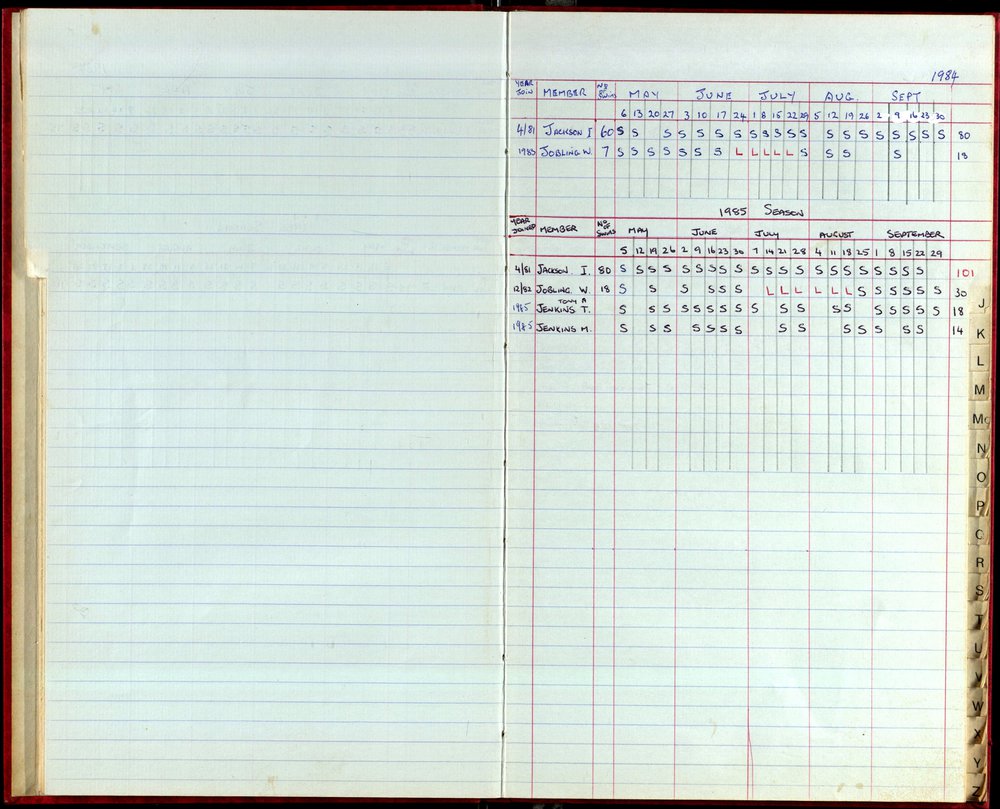 1984
YEAR JOIN MEMBER Nº SWIMS MAY JUNE JULY AUG. SEPT
6 13 20 27 3 10 17 24 1 8 15 22 29 5 12 19 26 2 9 16 23 30
4/81 JACKSON I 60 S S S S S S S S S S S S S S S S S S S S 80
1983 JOBLING W. 7 S S S S S S S L L L L L S S S S 18
1985 SEASON
YEAR JOINED MEMBER Nº OF SWIMS MAY JUNE JULY AUGUST SEPTEMBER
5 12 19 26 2 9 16 23 30 7 14 21 28 4 11 18 25 1 8 15 22 29
4/81 JACKSON. I. 80 S S S S S S S S S S S S S S S S S S S S S 101
12/82 JOBLING. W. 18 S S S S S S L L L L L L S S S S S S 30
TONY A
1985 JENKINS T. S S S S S S S S S S S S S S S S S S 18
1985 JENKINS M. S S S S S S S S S S S S S S 14
J
K
L
M
Mc
N
O
P
Q
R
S
T
U
V
W
X
Y
Z